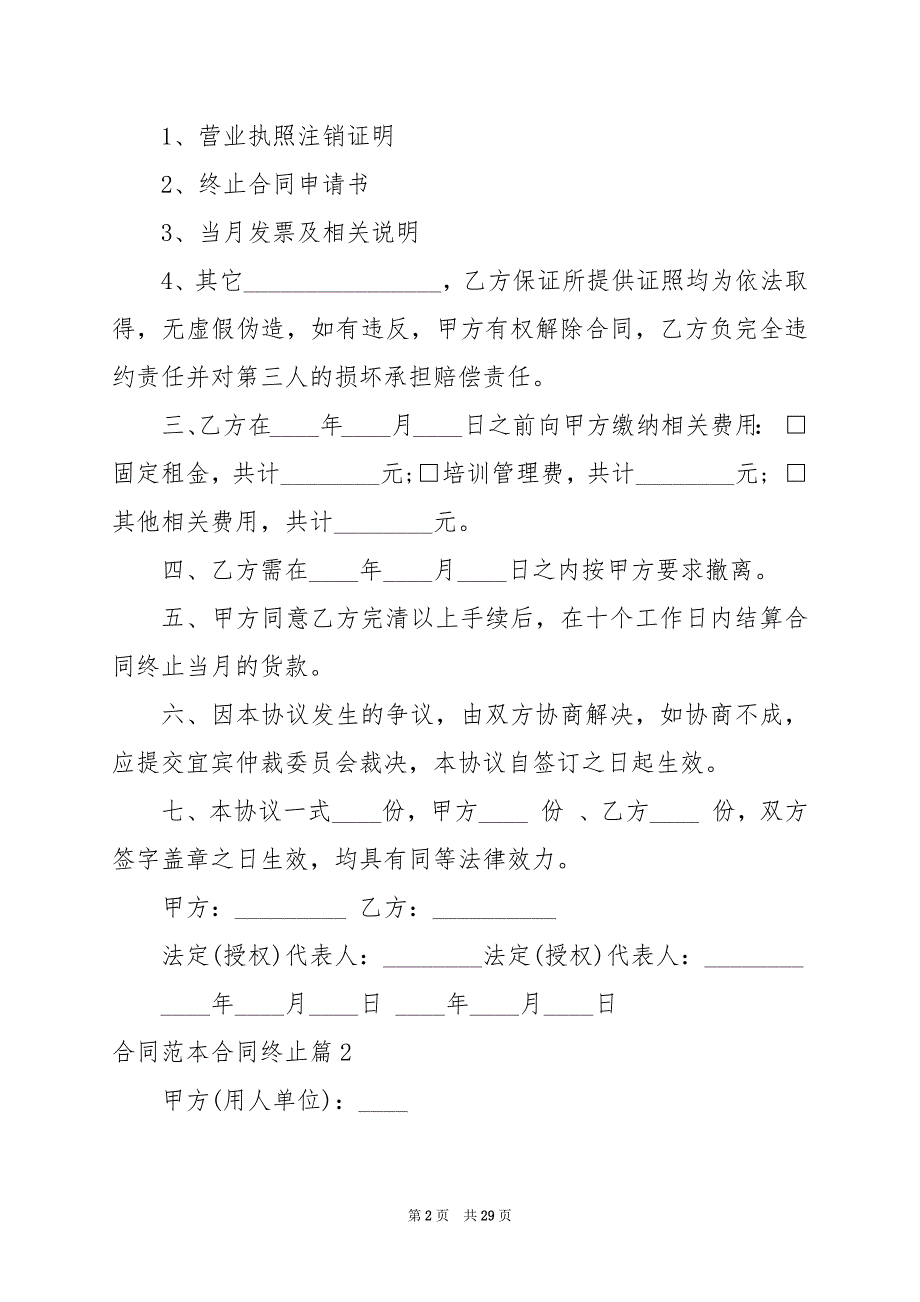 1、营业执照注销证明
2、终止合同申请书
3、当月发票及相关说明
4、其它________________，乙方保证所提供证照均为依法取
得，无虚假伪造，如有违反，甲方有权解除合同，乙方负完全违
约责任并对第三人的损坏承担赔偿责任。
三、乙方在____年____月____日之前向甲方缴纳相关费用： □
固定租金，共计________元;□培训管理费，共计________元; □
其他相关费用，共计________元。
四、乙方需在____年____月____日之内按甲方要求撤离。
五、甲方同意乙方完清以上手续后，在十个工作日内结算合
同终止当月的货款。
六、因本协议发生的争议，由双方协商解决，如协商不成，
应提交宜宾仲裁委员会裁决，本协议自签订之日起生效。
七、本协议一式____份，甲方____ 份 、乙方____ 份，双方
签字盖章之日生效，均具有同等法律效力。
甲方：_________ 乙方：__________
法定(授权)代表人：________法定(授权)代表人：________
____年____月____日 ____年____月____日
合同范本合同终止篇2
甲方(用人单位)：____
第 2 页 共 29 页